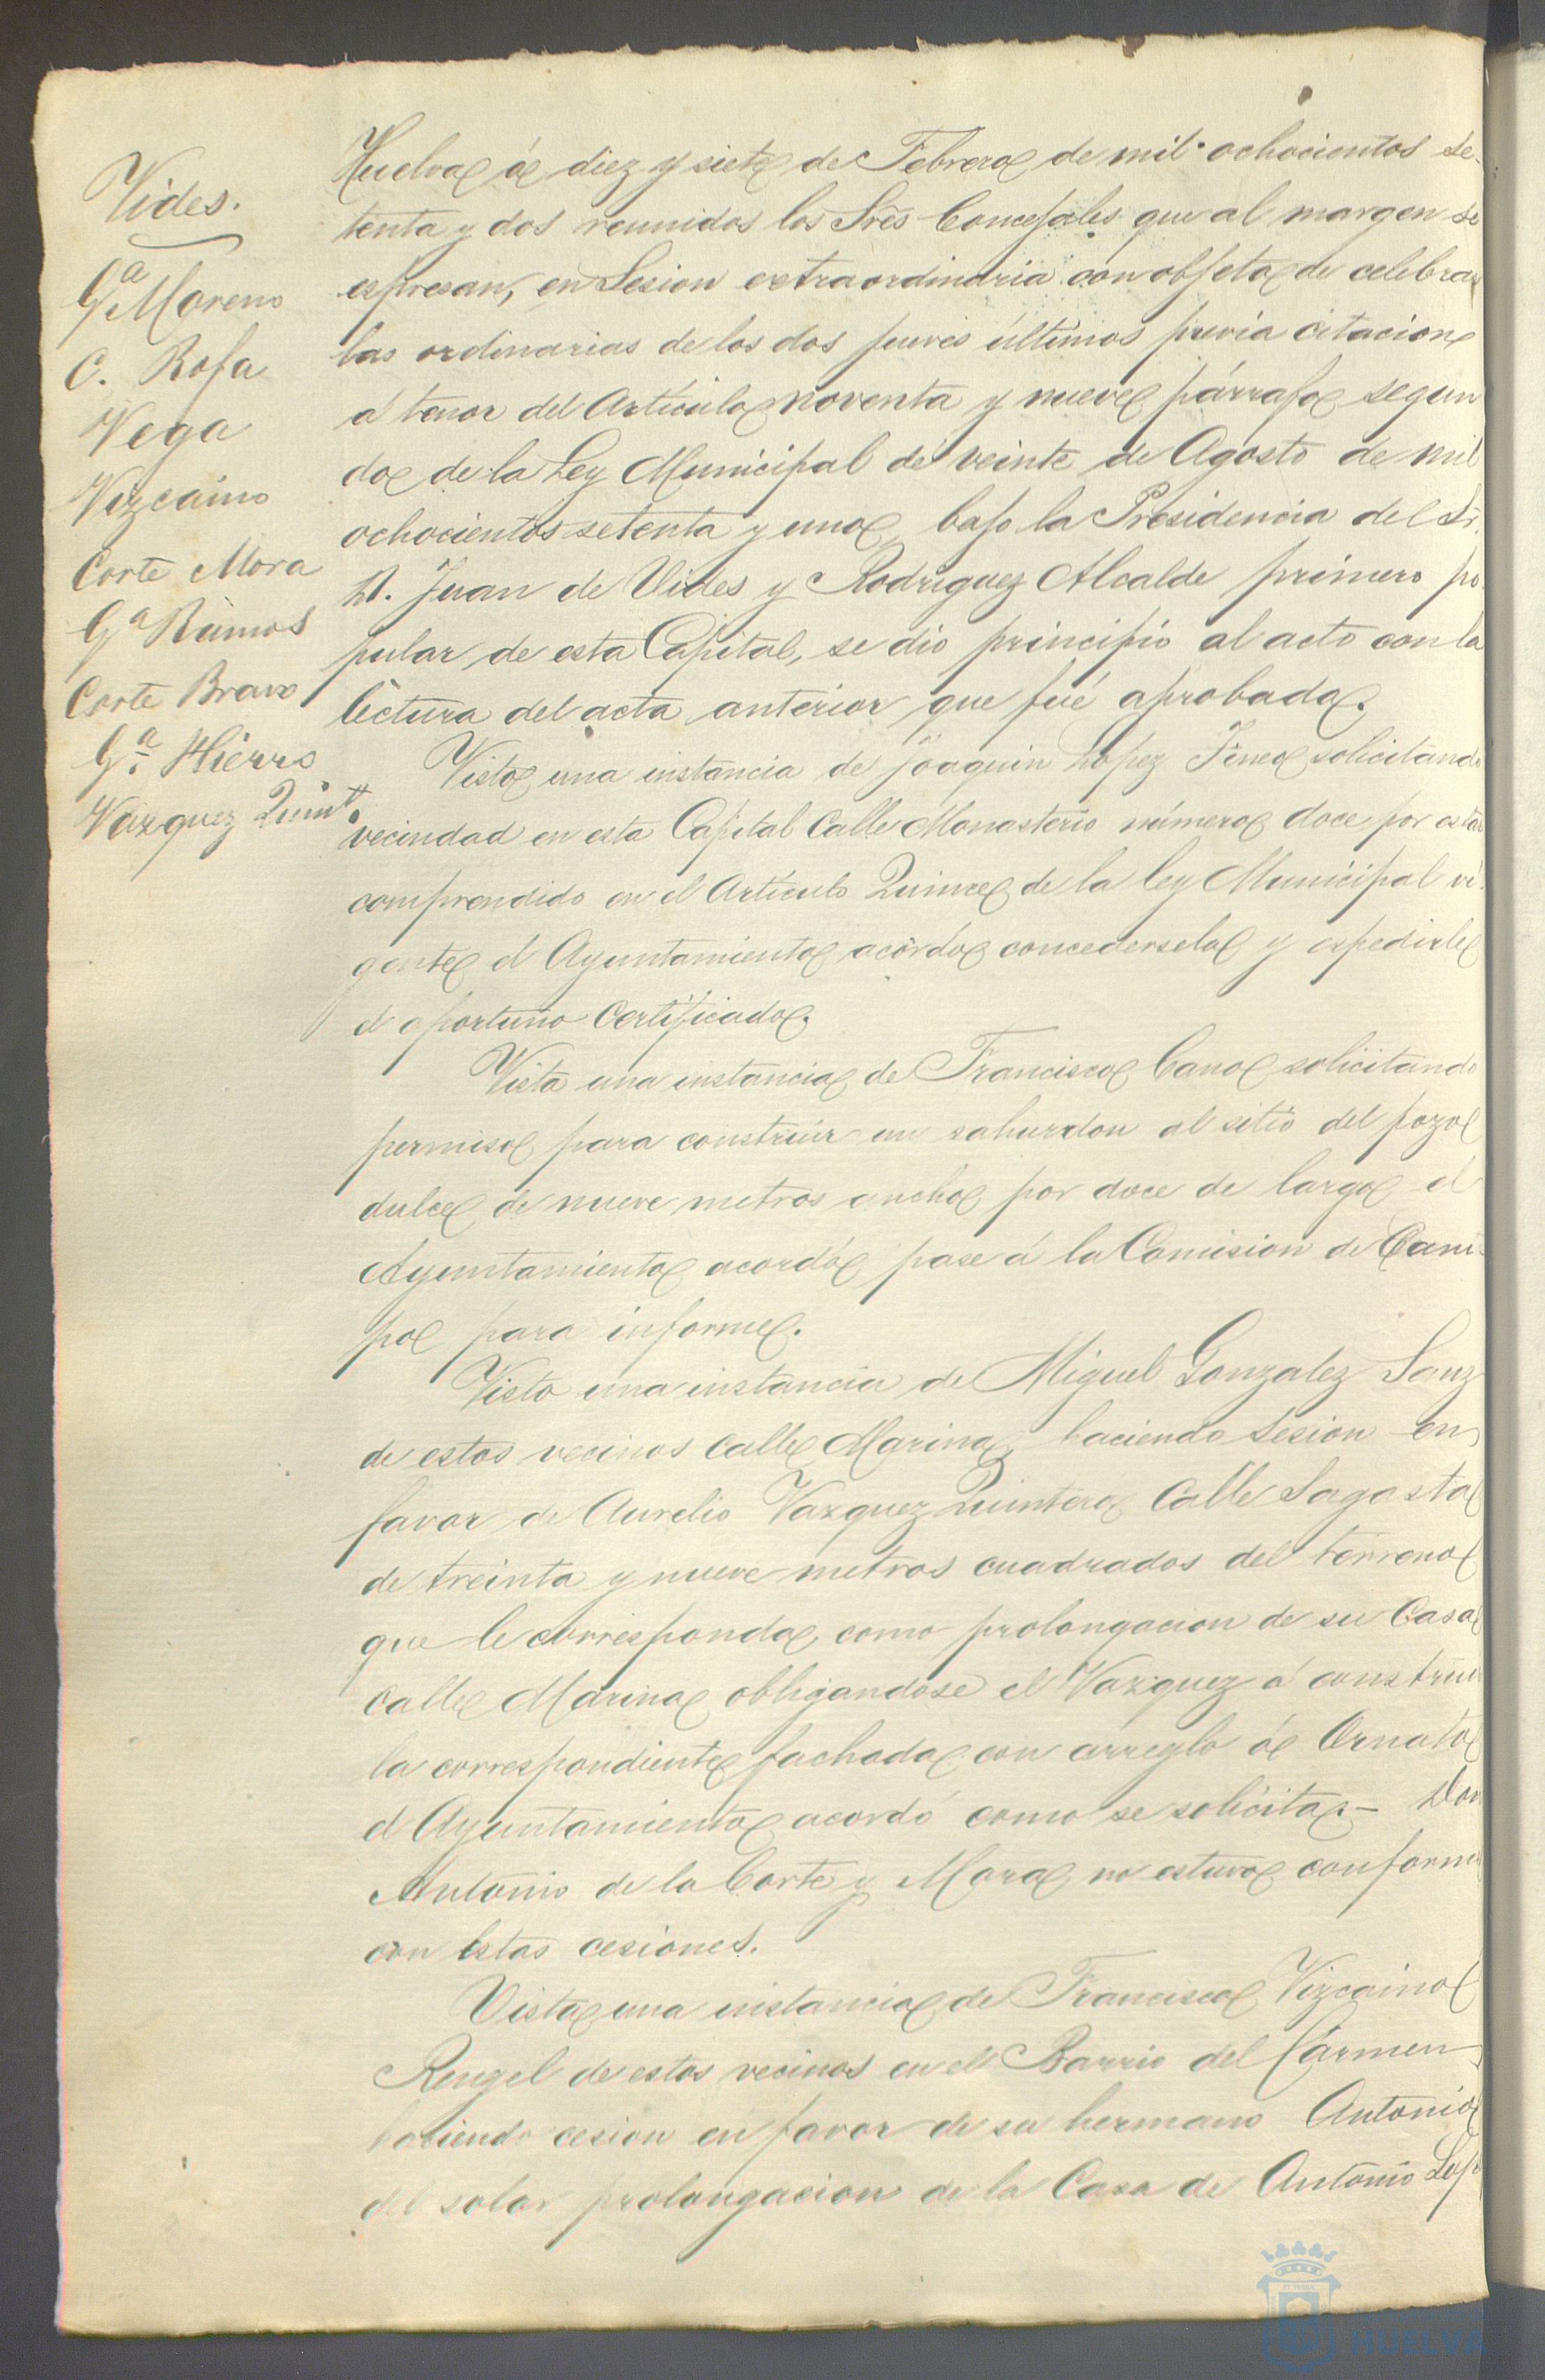 Vides.
Gª Moreno
C. Rofa
Vega
Vizcaino
Corte Mora
Gª Ramos
Corte Bravo
Gª. Hierro
Vazquez Quintº
Huelva á diez y siete de Febrero de mil ochocientos se-
tenta y dos reunidos los Sres Concejales que al margen se
espresan, en Sesion extraordinaria con objeto de celebrar
las ordinarias de los dos jueves últimos previa citacion
á tenor del Artículo noventa y nueve párrafo segun
do de la Ley Municipal de veinte de Agosto de mil
ochocientos setenta y uno, bajo la Presidencia del Sr.
D. Juan de Vides y Rodriguez Alcalde primero po
pular de esta Capital, se dio principio al acto con la
lectura del acta anterior que fué aprobada.
Visto una instancia de Joaquin Lopez solicitando
vecindad en esta Capital Calle Monasterio número doce por estar
comprendido en el Articulo Quince de la ley Municipal vi-
gente el Ayuntamiento acórdo concederselo y espedirle
el oportuno Certificado.
Vista una instancia de Francisco Cano solicitando
permiso para construir un sahurdon al sitio del pozo
dulce de nueve metros ancho por doce de largo el
Ayuntamiento acordó pase á la Comision de Cam-
po para informe.
Visto una instancia de Miguel Gonzalez Sanz
de estos vecinos calle Marina, haciendo Sesion en
favor de Aurelio Vazquez Quintero Calle Sagasta
de treinta y nueve metros cuadrados del terreno
que le corresponda, como prolongacion de su Casa
calle Marina obligandose el Vazquez á construir
la correspondiente fachada con arreglo á Ornato
el Ayuntamiento acordó como se solicita.- Don
Antonio de la Corte y Mora no estuvo conforme
con estas cesiones.
Vista una instancia de Francisco Vizcaino
Rengel de estos vecinos en el Barrio del Cármen
haciendo cesion en favor de su hermano Antonio
del solar prolongacion de la Casa de Antonio Lop
HUELVA